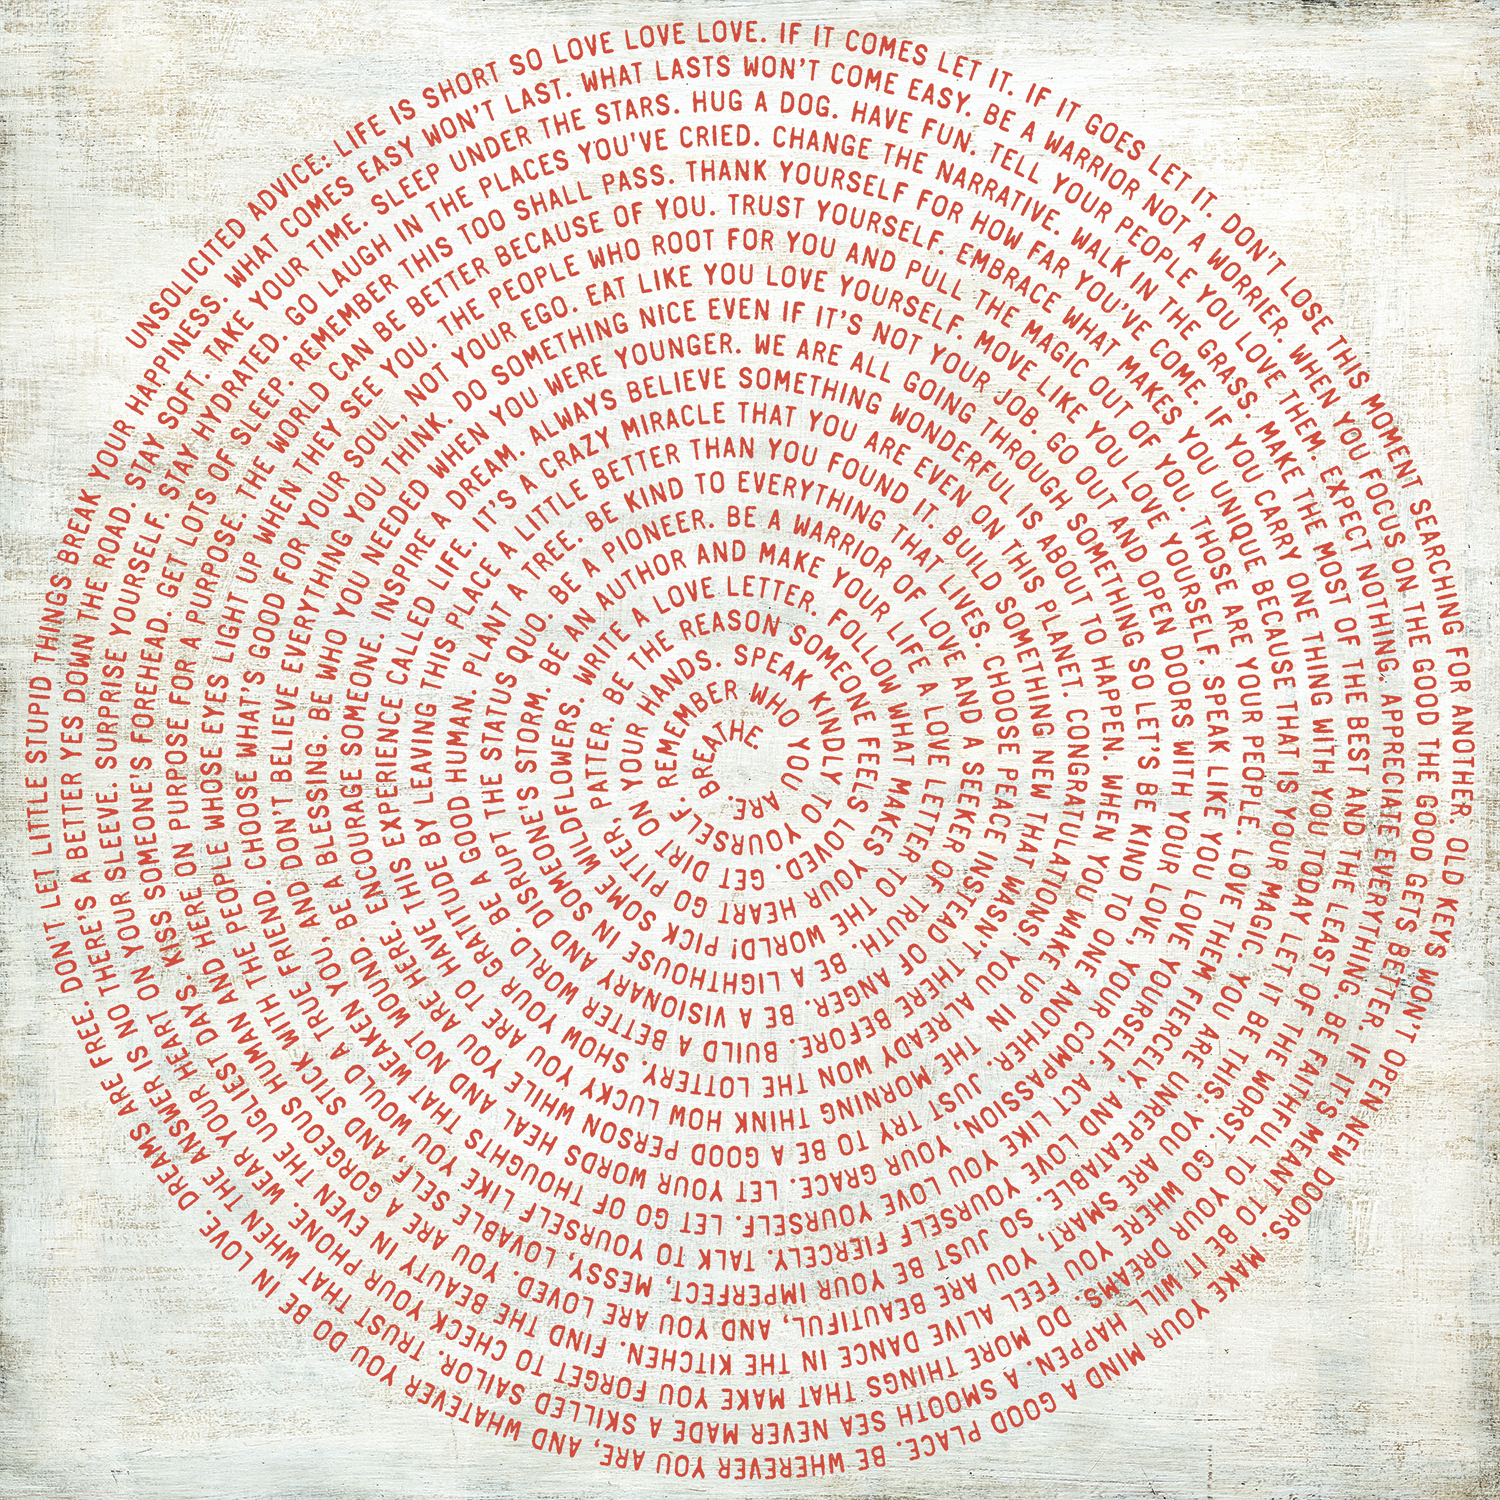 UNSOLICITED ADVICE: LIFE IS SHORT SO LOVE LOVE LOVE. IF IT COMES LET IT. IF IT GOES LET IT. DON'T LOSE THIS MOMENT SEARCHING FOR ANOTHER. OLD KEYS WON'T OPEN NEW DOORS. MAKE YOUR MIND A GOOD PLACE. BE WHEREVER YOU ARE, AND WHATEVER YOU DO BE IN LOVE. DREAMS ARE FREE. DON'T LET LITTLE STUPID THINGS BREAK YOUR HAPPINESS.
WHAT COMES EASY WON'T LAST. WHAT LASTS WON'T COME EASY. BE A WARRIOR NOT A WORRIER. WHEN YOU FOCUS ON THE GOOD THE GOOD GETS BETTER. IF IT'S MEANT TO BE IT WILL HAPPEN. A SMOOTH SEA NEVER MADE A SKILLED SAILOR. TRUST THAT WHEN THE ANSWER IS NO THERE'S A BETTER YES DOWN THE ROAD. STAY SOFT.
TAKE YOUR TIME. SLEEP UNDER THE STARS. HUG A DOG. HAVE FUN. TELL YOUR PEOPLE YOU LOVE THEM. EXPECT NOTHING, APPRECIATE EVERYTHING. BE FAITHFUL TO YOUR DREAMS. DO MORE THINGS THAT MAKE YOU FORGET TO CHECK YOUR PHONE. WEAR YOUR HEART ON YOUR SLEEVE. SURPRISE YOURSELF. STAY HYDRATED.
GO LAUGH IN THE PLACES YOU'VE CRIED. CHANGE THE NARRATIVE. WALK IN THE GRASS. MAKE THE MOST OF THE BEST AND THE LEAST OF THE WORST. GO WHERE YOU FEEL ALIVE DANCE IN THE KITCHEN. FIND THE BEAUTY IN EVEN THE UGLIEST DAYS. KISS SOMEONE'S FOREHEAD. GET LOTS OF SLEEP.
REMEMBER THIS TOO SHALL PASS. THANK YOURSELF FOR HOW FAR YOU'VE COME. IF YOU CARRY ONE THING WITH YOU TODAY LET IT BE THIS: YOU ARE SMART, YOU ARE BEAUTIFUL, AND YOU ARE LOVED. YOU ARE A GORGEOUS HUMAN AND HERE ON PURPOSE FOR A PURPOSE.
THE WORLD CAN BE BETTER BECAUSE OF YOU. TRUST YOURSELF. EMBRACE WHAT MAKES YOU UNIQUE BECAUSE THAT IS YOUR MAGIC. YOU ARE UNREPEATABLE. SO JUST BE YOUR IMPERFECT, MESSY, LOVABLE SELF, AND STICK WITH THE PEOPLE WHOSE EYES LIGHT UP WHEN THEY SEE YOU.
THE PEOPLE WHO ROOT FOR YOU AND PULL THE MAGIC OUT OF YOU. THOSE ARE YOUR PEOPLE. LOVE THEM FIERCELY, AND LOVE YOURSELF FIERCELY. TALK TO YOURSELF LIKE YOU WOULD A TRUE FRIEND. CHOOSE WHAT'S GOOD FOR YOUR SOUL, NOT YOUR EGO.
EAT LIKE YOU LOVE YOURSELF. MOVE LIKE YOU LOVE YOURSELF. SPEAK LIKE YOU LOVE YOURSELF. ACT LIKE YOU LOVE YOURSELF. LET GO OF THOUGHTS THAT WEAKEN YOU, AND DON'T BELIEVE EVERYTHING YOU THINK.
DO SOMETHING NICE EVEN IF IT'S NOT YOUR JOB. GO OUT AND OPEN DOORS WITH YOUR LOVE, YOUR COMPASSION, YOUR GRACE. LET YOUR WORDS HEAL AND NOT WOUND. BE A BLESSING. BE WHO YOU NEEDED WHEN YOU WERE YOUNGER.
WE ARE ALL GOING THROUGH SOMETHING SO LET'S BE KIND TO ONE ANOTHER. JUST TRY TO BE A GOOD PERSON WHILE YOU ARE HERE. ENCOURAGE SOMEONE. INSPIRE A DREAM.
ALWAYS BELIEVE SOMETHING WONDERFUL IS ABOUT TO HAPPEN. WHEN YOU MAKE UP IN THE MORNING THINK HOW LUCKY YOU ARE TO HAVE THIS EXPERIENCE CALLED LIFE.
IT'S A CRAZY MIRACLE THAT YOU ARE EVEN ON THIS PLANET. CONGRATULATIONS! YOU ALREADY WON THE LOTTERY. SHOW YOUR GRATITUDE BY LEAVING THIS PLACE A LITTLE BETTER THAN YOU FOUND IT.
BUILD SOMETHING NEW THAT WASN'T THERE BEFORE. BUILD A BETTER WORLD. BE A GOOD HUMAN. PLANT A TREE.
BE KIND TO EVERYTHING THAT LIVES. CHOOSE PEACE INSTEAD OF ANGER. BE A VISIONARY AND DISRUPT THE STATUS QUO. BE A PIONEER.
BE A WARRIOR OF LOVE AND A SEEKER OF TRUTH. BE A LIGHTHOUSE IN SOMEONE'S STORM.
BE AN AUTHOR AND MAKE YOUR LIFE A LOVE LETTER TO THE WORLD! PICK SOME WILDFLOWERS.
WRITE A LOVE LETTER. FOLLOW WHAT MAKES YOUR HEART GO PITTER, PATTER.
BE THE REASON SOMEONE FEELS LOVED. GET DIRT ON YOUR HANDS.
SPEAK KINDLY TO YOURSELF.
REMEMBER WHO YOU ARE.
BREATHE.